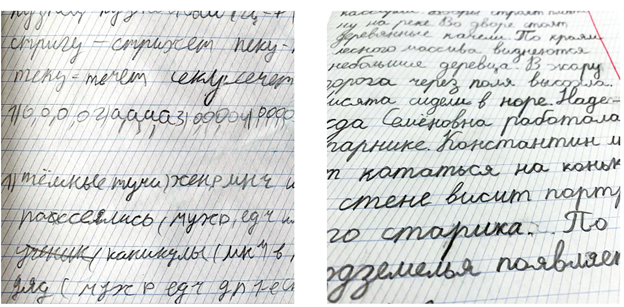 стригу - стрижёт пеку -
теку - течёт секу сечёт
1) 0,0,0 2) а,а,а,а 3) о,о,о,о 4)
1) тёмные тучи) жен р мн ч и
расселись ( муж р, ед ч и
ученик ( каникулы ( мн ч в
дяд ( муж р ед ч д п
ну на реке. Во дворе стоят
деревянные качели. По краям
лесного массива виднеются
небольшие деревца. В жару
дорога через поля высохла.
лисята сидели в норе. Наде-
жда Семёновна работала
парнике. Константин
т кататься на коньк
стене висит портр
го старика. По
одземелья появляе